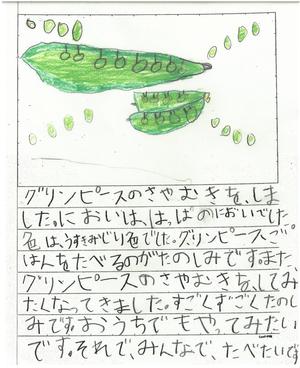 グリンピースのさやむきを、しま
した。においは、はっぱのにおいでした
色は、うすきみじり色でした。グリンピースご
はんをたべるのがたのしみです。また
グリンピースのさやむきを、してみ
たくなってきました。すごくすごくたのし
みです。おうちでもやってみたい
です。それで、みんなで、たべたいです